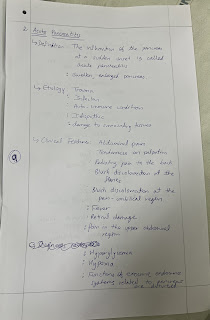 2. Acute Pancreatitis
↳ Definition: The inflammation of the pancreas
at a sudden onset is called
acute pancreatitis
: Swollen, enlarged pancreas
↳ Etiology: Trauma
: Infection
: Auto-immune conditions
: Idiopathic
: damage to surrounding tissues
↳ Clinical Features: Abdominal pain
: Tenderness on palpation
: Radiating pain to the back
: Black discolouration at the
flanks
: Black discolouration at the
peri-umbilical region
: Fever
: Retinal damage
: Pain in the upper abdominal
region
: Hyperglycemia
: Hypoxia
: Functions of exocrine endocrine
systems related to pancreas
are deranged
9